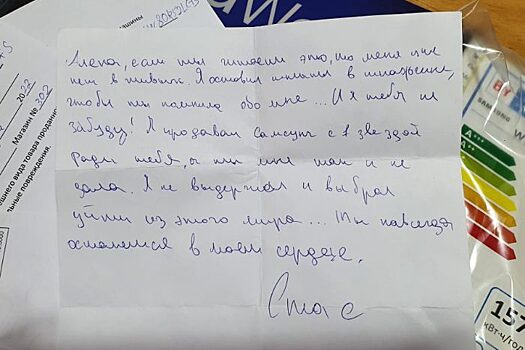 машины
Лена, если ты читаешь это, то меня уже
нет в живых. Я оставил в
чтобы ты помнила обо мне... И я тебя не
забуду! Я продавал Самсунг с 1 звездой
ради тебя, а ты мне так и не
дала. Я не выдержал и выбрал
уйти из этого мира... Ты навсегда
останешься в моем сердце.
Стас
2022
Магазин № 302
шнего вида товара
льные повреждения.
BY
SAMSUNG
157
кВт·ч/год